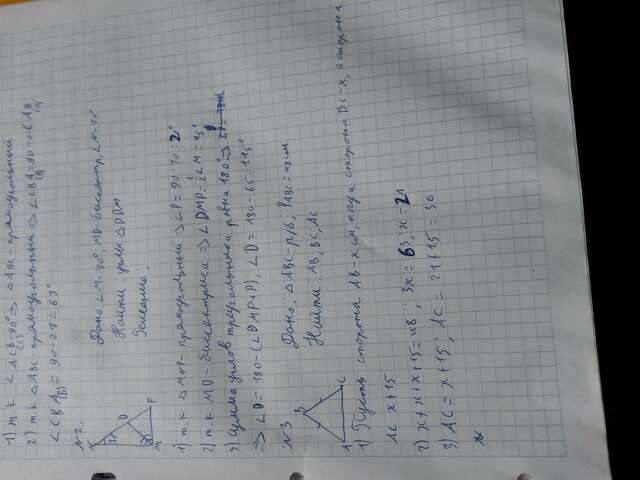 1) т.к ∠ACB=90° ⇒ △ABC - прямоугольный
2) т.к △ABC прямоугольный ⇒ ∠CBA = 90 - ∠CAB
∠CBA(B) = 90 - 27 = 63°
№2.
Дано: ∠M=90°, MD - биссектр, ∠N=70°
Найти: углы △DPM
Решение:
1) т.к △MNP - прямоугольный ⇒ ∠P = 90 - 70 = 20°
2) т.к MD - биссектриса ⇒ ∠DMP = ∠M = 45°
3) Сумма углов треугольника равна 180° ⇒
⇒ ∠D = 180 - (∠DMP + P); ∠D = 180 - 65 = 115°
№3
Дано: △ABC - р/б; P ABC = 48 см
Найти: AB, BC, AC
A B C
1) Пусть сторона AB - x см, тогда сторона BC - x, а сторона
AC x+15
2) x+x+x+15=48; 3x = 63; x = 21
3) AC = x+15; AC = 21+15 = 36